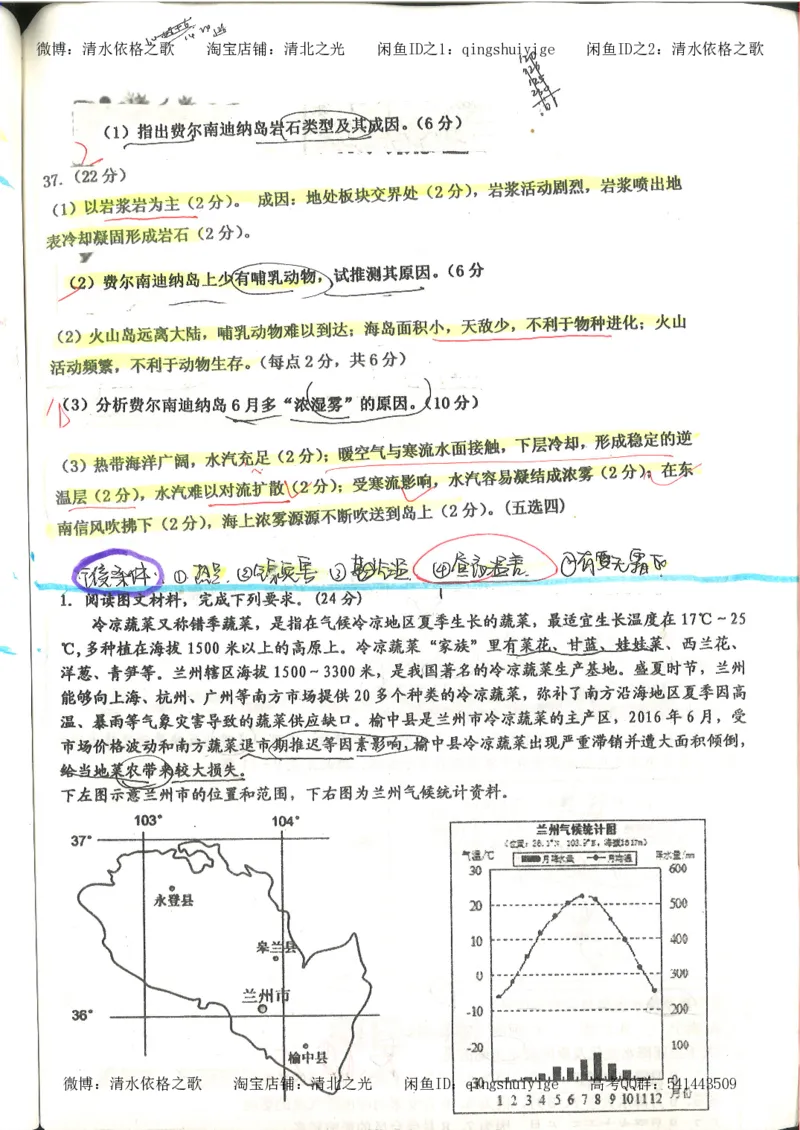 微博：清水依格之歌 淘宝店铺：清北之光 闲鱼ID之1：qingshuiyige 闲鱼ID之2：清水依格之歌
（1）指出费尔南迪纳岛岩石类型及其成因。（6分）
37.（22分）
（1）以岩浆岩为主（2分）。 成因：地处板块交界处（2分），岩浆活动剧烈，岩浆喷出地
表冷却凝固形成岩石（2分）。
（2）费尔南迪纳岛上少有哺乳动物，试推测其原因。（6分
（2）火山岛远离大陆，哺乳动物难以到达；海岛面积小，天敌少，不利于物种进化；火山
活动频繁，不利于动物生存。（每点2分，共6分）
（3）分析费尔南迪纳岛6月多“浓湿雾”的原因。（10分）
（3）热带海洋广阔，水汽充足（2分）；暖空气与寒流水面接触，下层冷却，形成稳定的逆
温层（2分），水汽难以对流扩散（2分）；受寒流影响，水汽容易凝结成浓雾（2分）；在东
南信风吹拂下（2分），海上浓雾源源不断吹送到岛上（2分）。（五选四）
1. 阅读图文材料，完成下列要求。（24分）
冷凉蔬菜又称错季蔬菜，是指在气候冷凉地区夏季生长的蔬菜，最适宜生长温度在17℃～25
℃，多种植在海拔1500米以上的高原上。冷凉蔬菜“家族”里有菜花、甘蓝、娃娃菜、西兰花、
洋葱、青笋等。兰州辖区海拔1500～3300米，是我国著名的冷凉蔬菜生产基地。盛夏时节，兰州
能够向上海、杭州、广州等南方市场提供20多个种类的冷凉蔬菜，弥补了南方沿海地区夏季因高
温、暴雨等气象灾害导致的蔬菜供应缺口。榆中县是兰州市冷凉蔬菜的主产区，2016年6月，受
市场价格波动和南方蔬菜退市期推迟等因素影响，榆中县冷凉蔬菜出现严重滞销并遭大面积倾倒，
给当地菜农带来较大损失。
下左图示意兰州市的位置和范围，下右图为兰州气候统计资料。
103° 104°
37°
永登县
皋兰县
兰州市
36°
榆中县
兰州气候统计图
气温/℃ 月降水量 月均温 降水量/mm
30 600
20 500
10 400
0 300
-10 200
-20 100
-30 0
1 2 3 4 5 6 7 8 9 10 11 12 月份
微博：清水依格之歌 淘宝店铺：清北之光 闲鱼ID：qingshuiyige 高考QQ群：541443509